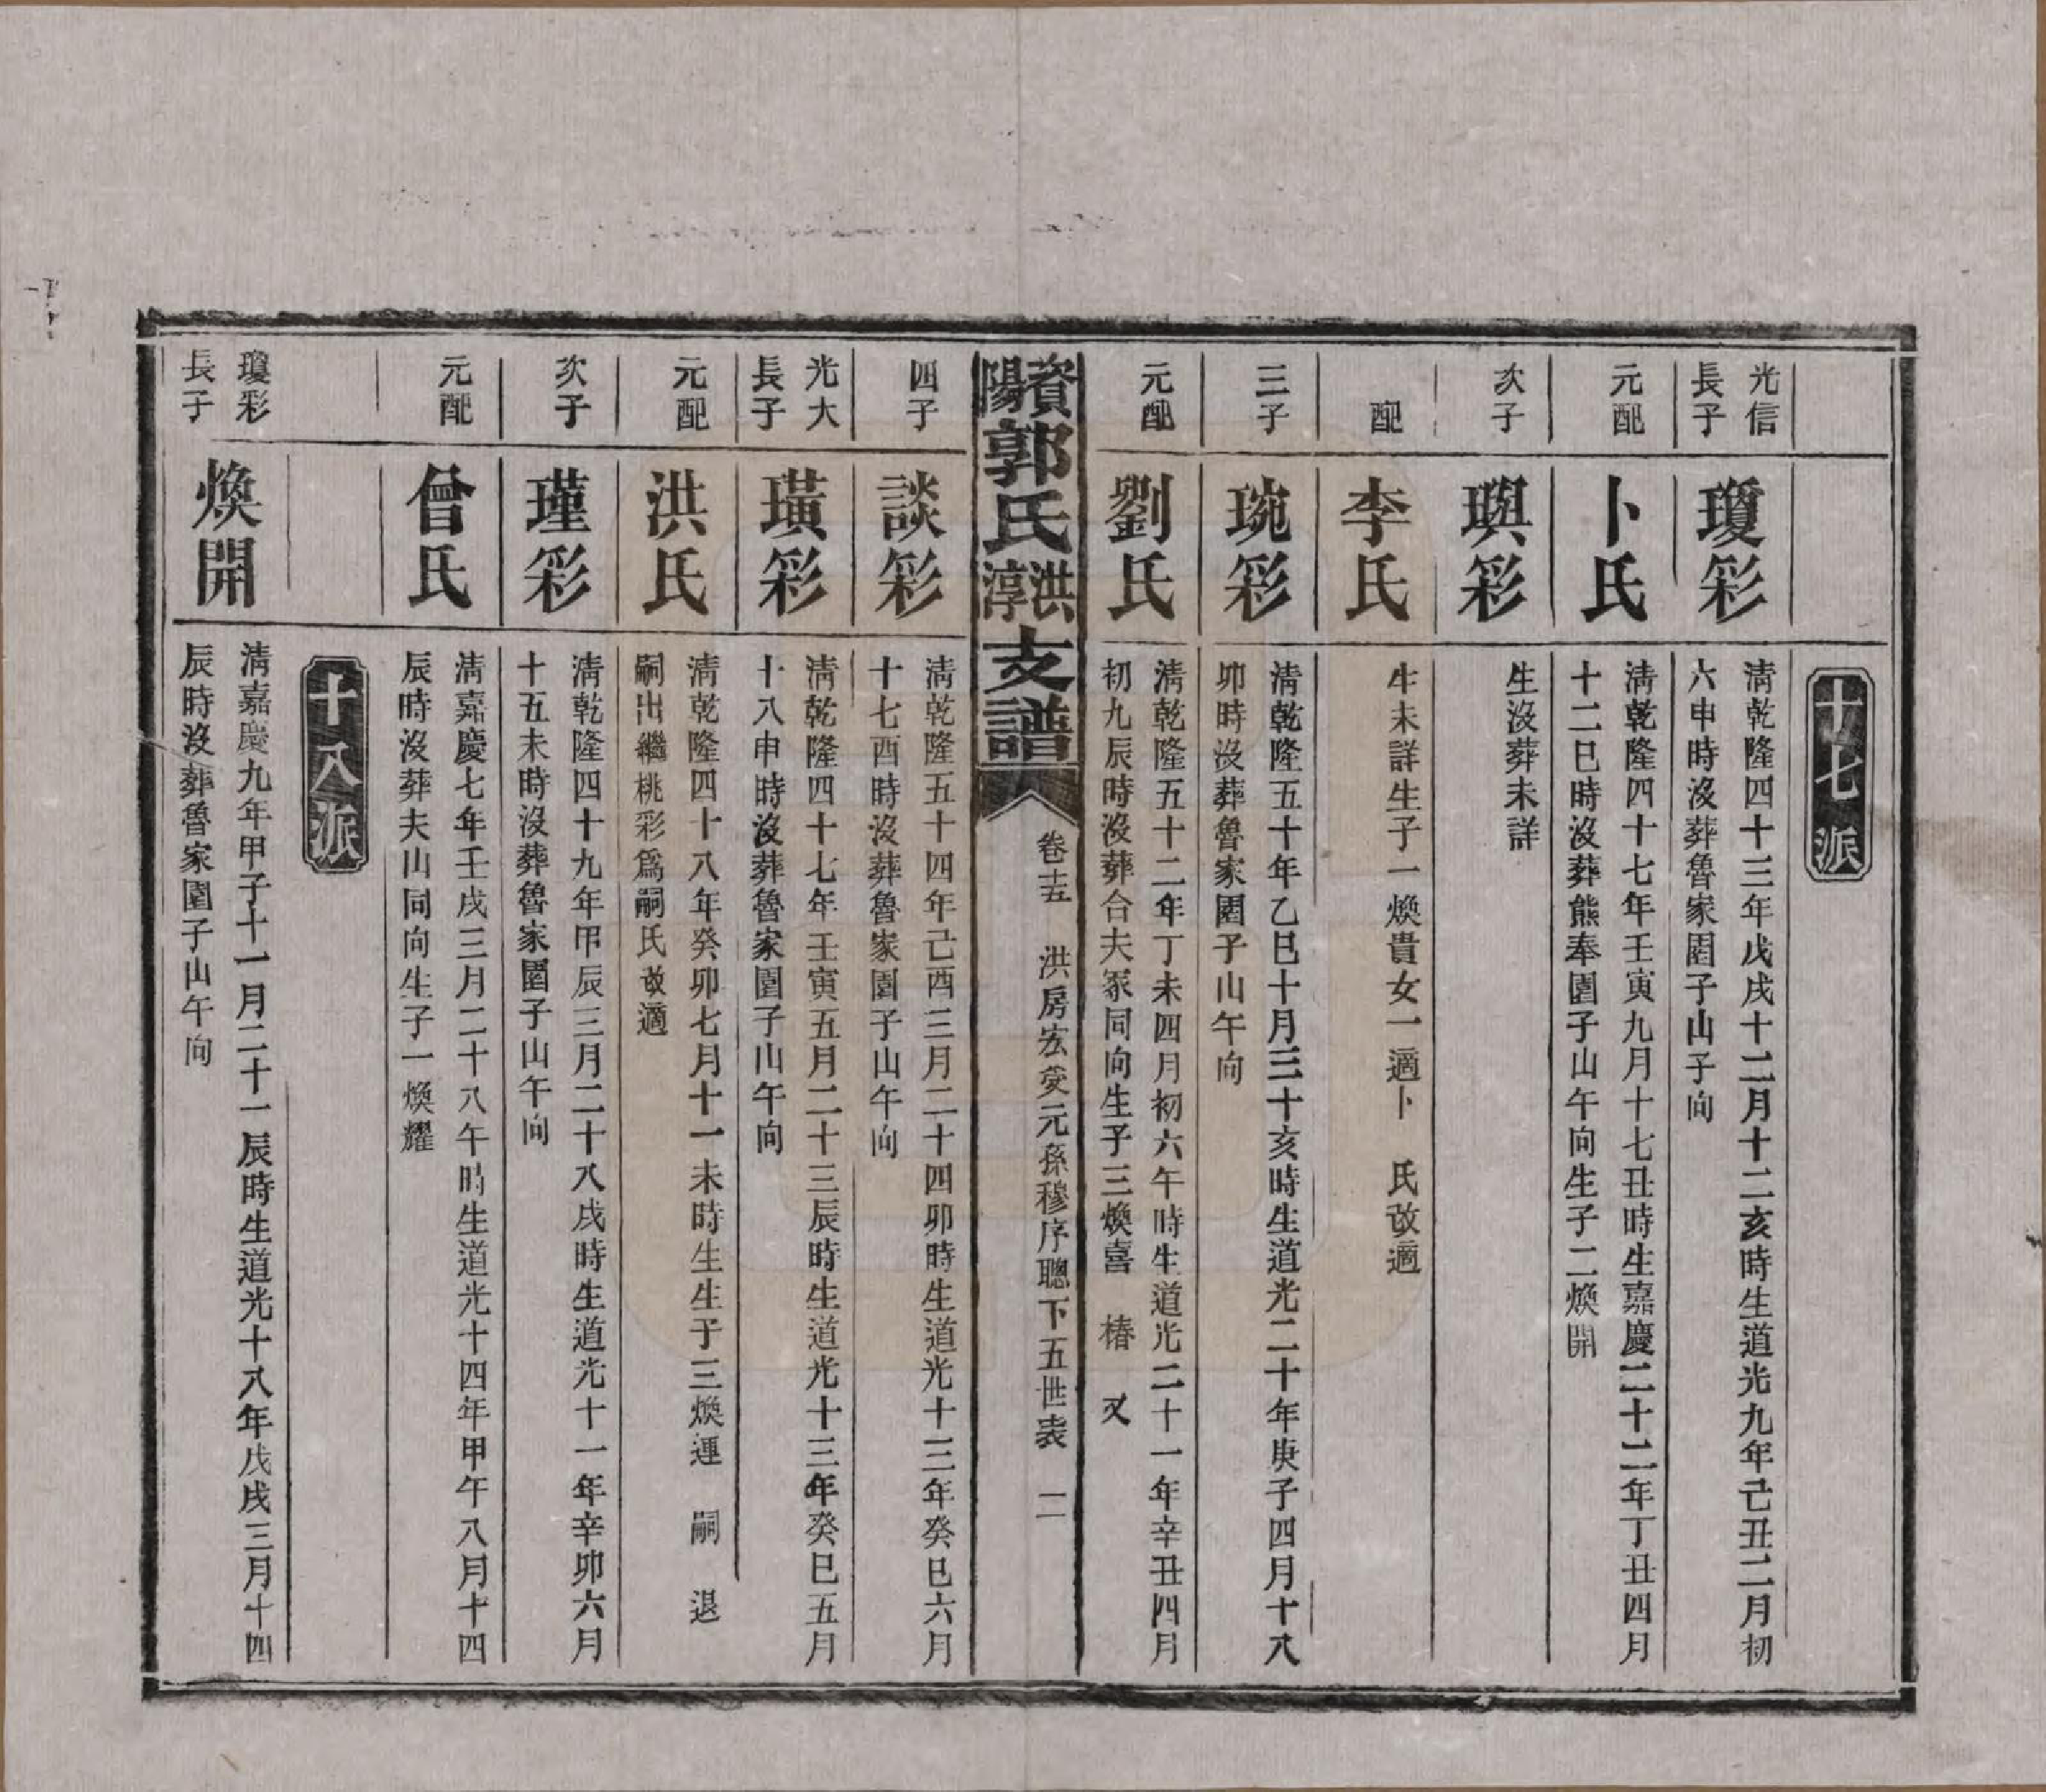 十七派
光信
長子
瓊彩
清乾隆四十三年戊戌十二月十二亥時生道光九年己丑二月初
六申時沒葬魯家園子山子向
元配
卜氏
清乾隆四十七年壬寅九月十七丑時生嘉慶二十二年丁丑四月
十二巳時沒葬熊奉園子山午向生子二煥開
次子
璵彩
生沒葬未詳
配
李氏
生未詳生子一煥貴女一適卜　氏改適
三子
琬彩
清乾隆五十年乙巳十月三十亥時生道光二十年庚子四月十八
卯時沒葬魯家園子山午向
元配
劉氏
清乾隆五十二年丁未四月初六午時生道光二十一年辛丑四月
初九辰時沒葬合夫冢同向生子三煥喜　椿　又
資陽郭氏洪淳支譜
卷十五　洪房宏受元孫穆序聰下五世表　二
四子
談彩
清乾隆五十四年己酉三月二十四卯時生道光十三年癸巳六月
十七酉時沒葬魯家園子山午向
光大
長子
璜彩
清乾隆四十七年壬寅五月二十三辰時生道光十三年癸巳五月
十八申時沒葬魯家園子山午向
元配
洪氏
清乾隆四十八年癸卯七月十一未時生生于三煥運　嗣　退
嗣出繼桃彩爲嗣氏改適
次子
瑾彩
清乾隆四十九年甲辰三月二十八戌時生道光十一年辛卯六月
十五未時沒葬魯家園子山午向
元配
曾氏
清嘉慶七年壬戌三月二十八午時生道光十四年甲午八月十四
辰時沒葬夫山同向生子一煥耀
十八派
瓊彩
長子
煥開
清嘉慶九年甲子十一月二十一辰時生道光十八年戊戌三月十四
辰時沒葬魯家園子山午向